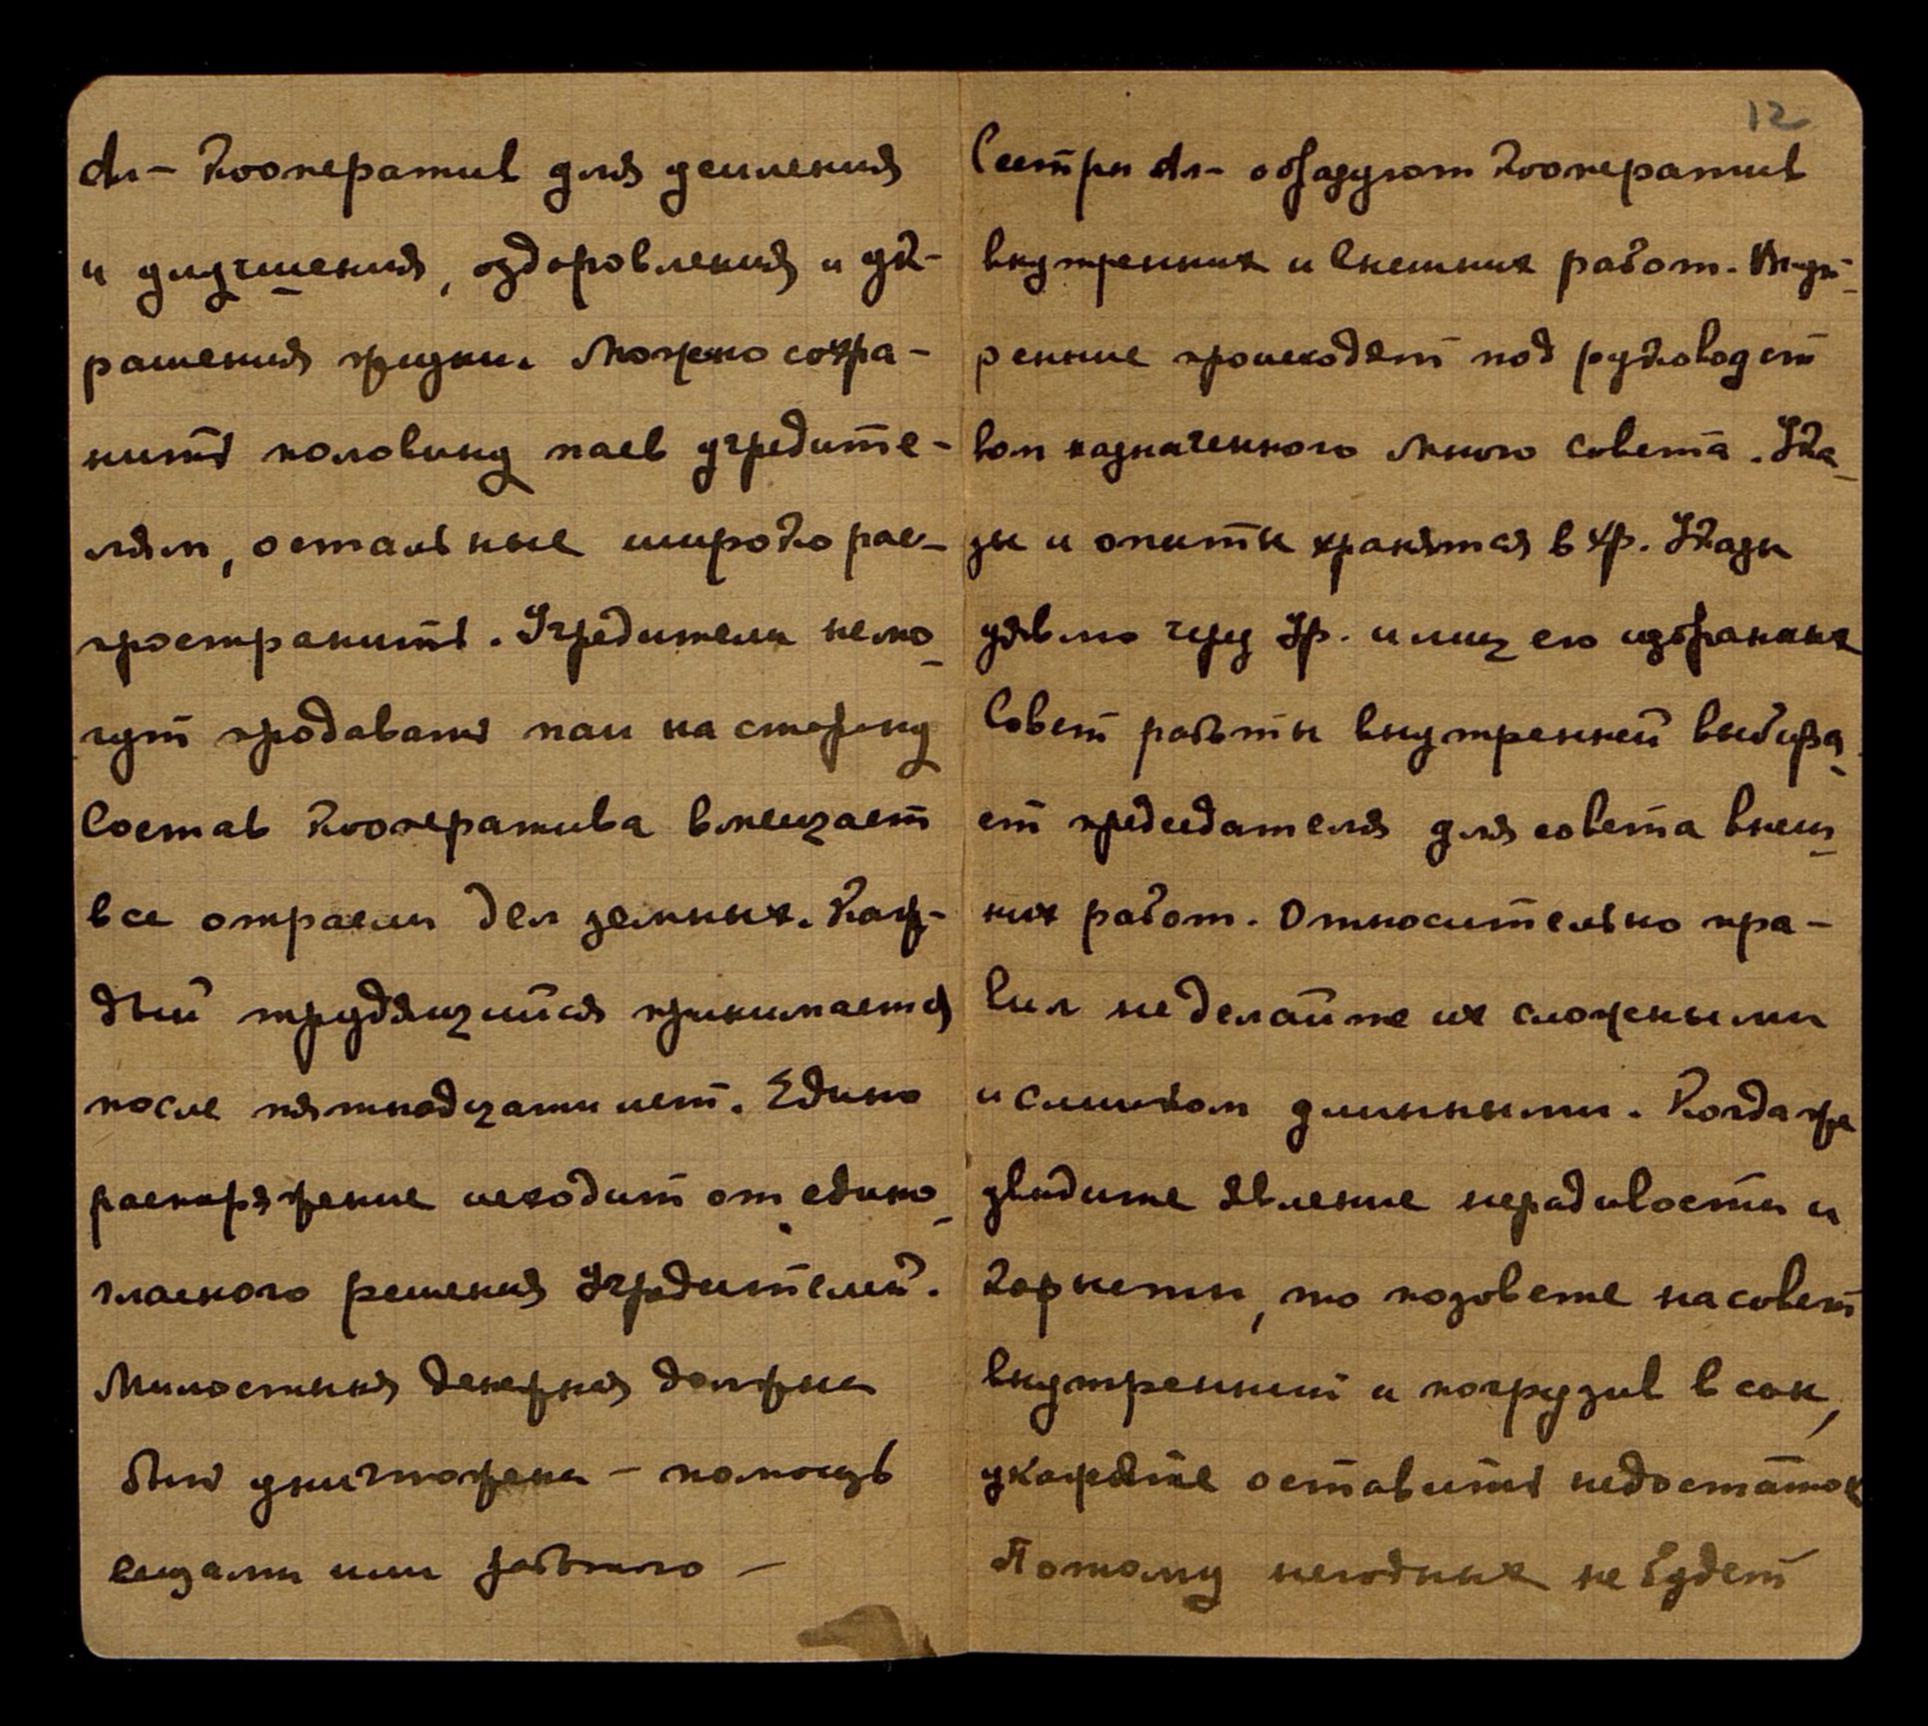 Ал- Кооператив для усиления
и улучшения, оздоровления и ук-
рашения жизни. Можно сохра-
нить половину паев учредите-
лям, остальные широко рас-
пространить. Учредители не мо-
гут продавать паи на сторону
Состав Кооператива вмещает
все отрасли дел земных. Каж-
дый трудящийся принимается
после пятнадцати лет. Едино
распоряжение исходит от едино-
гласного решения Учредителей.
Милостыня денежная должна
быть уничтожена – помощь
вещами или работою –
12
Сестры Ал- образуют Кооператив
внутренних и внешних работ. Внут-
ренние происходят под руководст
вом назначенного Мною Совета. Ука-
зы и опыты хранятся в Хр. Указы
уявлю через Ур. и лиц его избранных
Совет работы внутренней выбира-
ет председателя для совета внеш-
них работ. Относительно пра-
вил не делайте их сложными
и слишком длинными. Когда же
увидите явление нерадивости и
корысти, то позовете на совет
внутренний и погрузив в сон,
укажете оставить недостаток
Потому негодных не будет